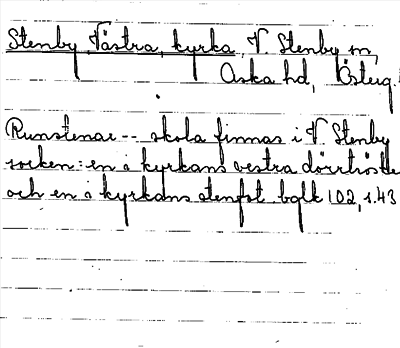 Stenby Västra, kyrka, V. Stenby sn,
Aska hd, Österg.
Runstenar -- skola finnas i V. Stenby
socken: en å kyrkans vestra dörrtröskel
och en å kyrkans stenfot. balk 102, s. 43